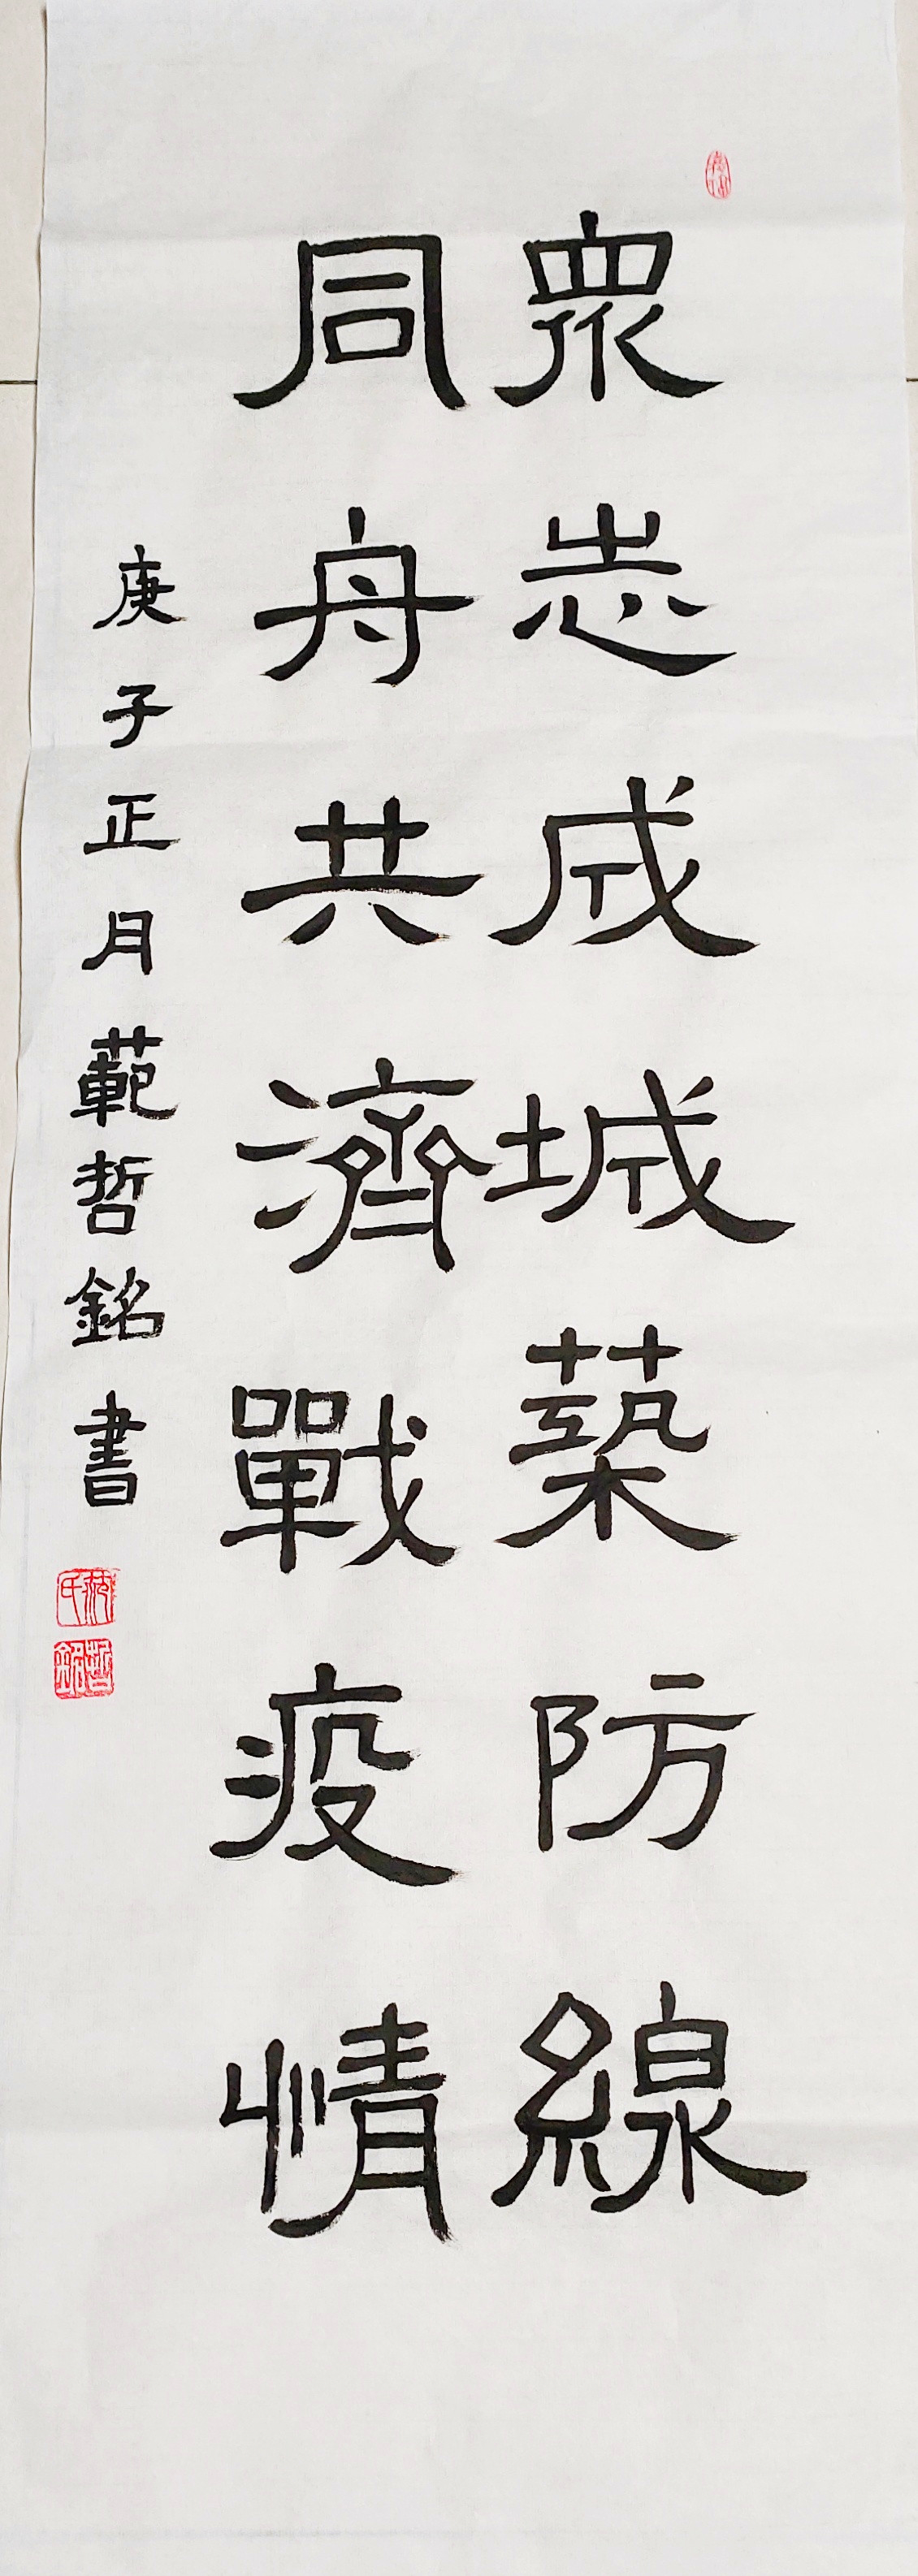 眾志成城築防線
同舟共濟戰疫情
庚子正月範哲銘書
范氏
哲銘